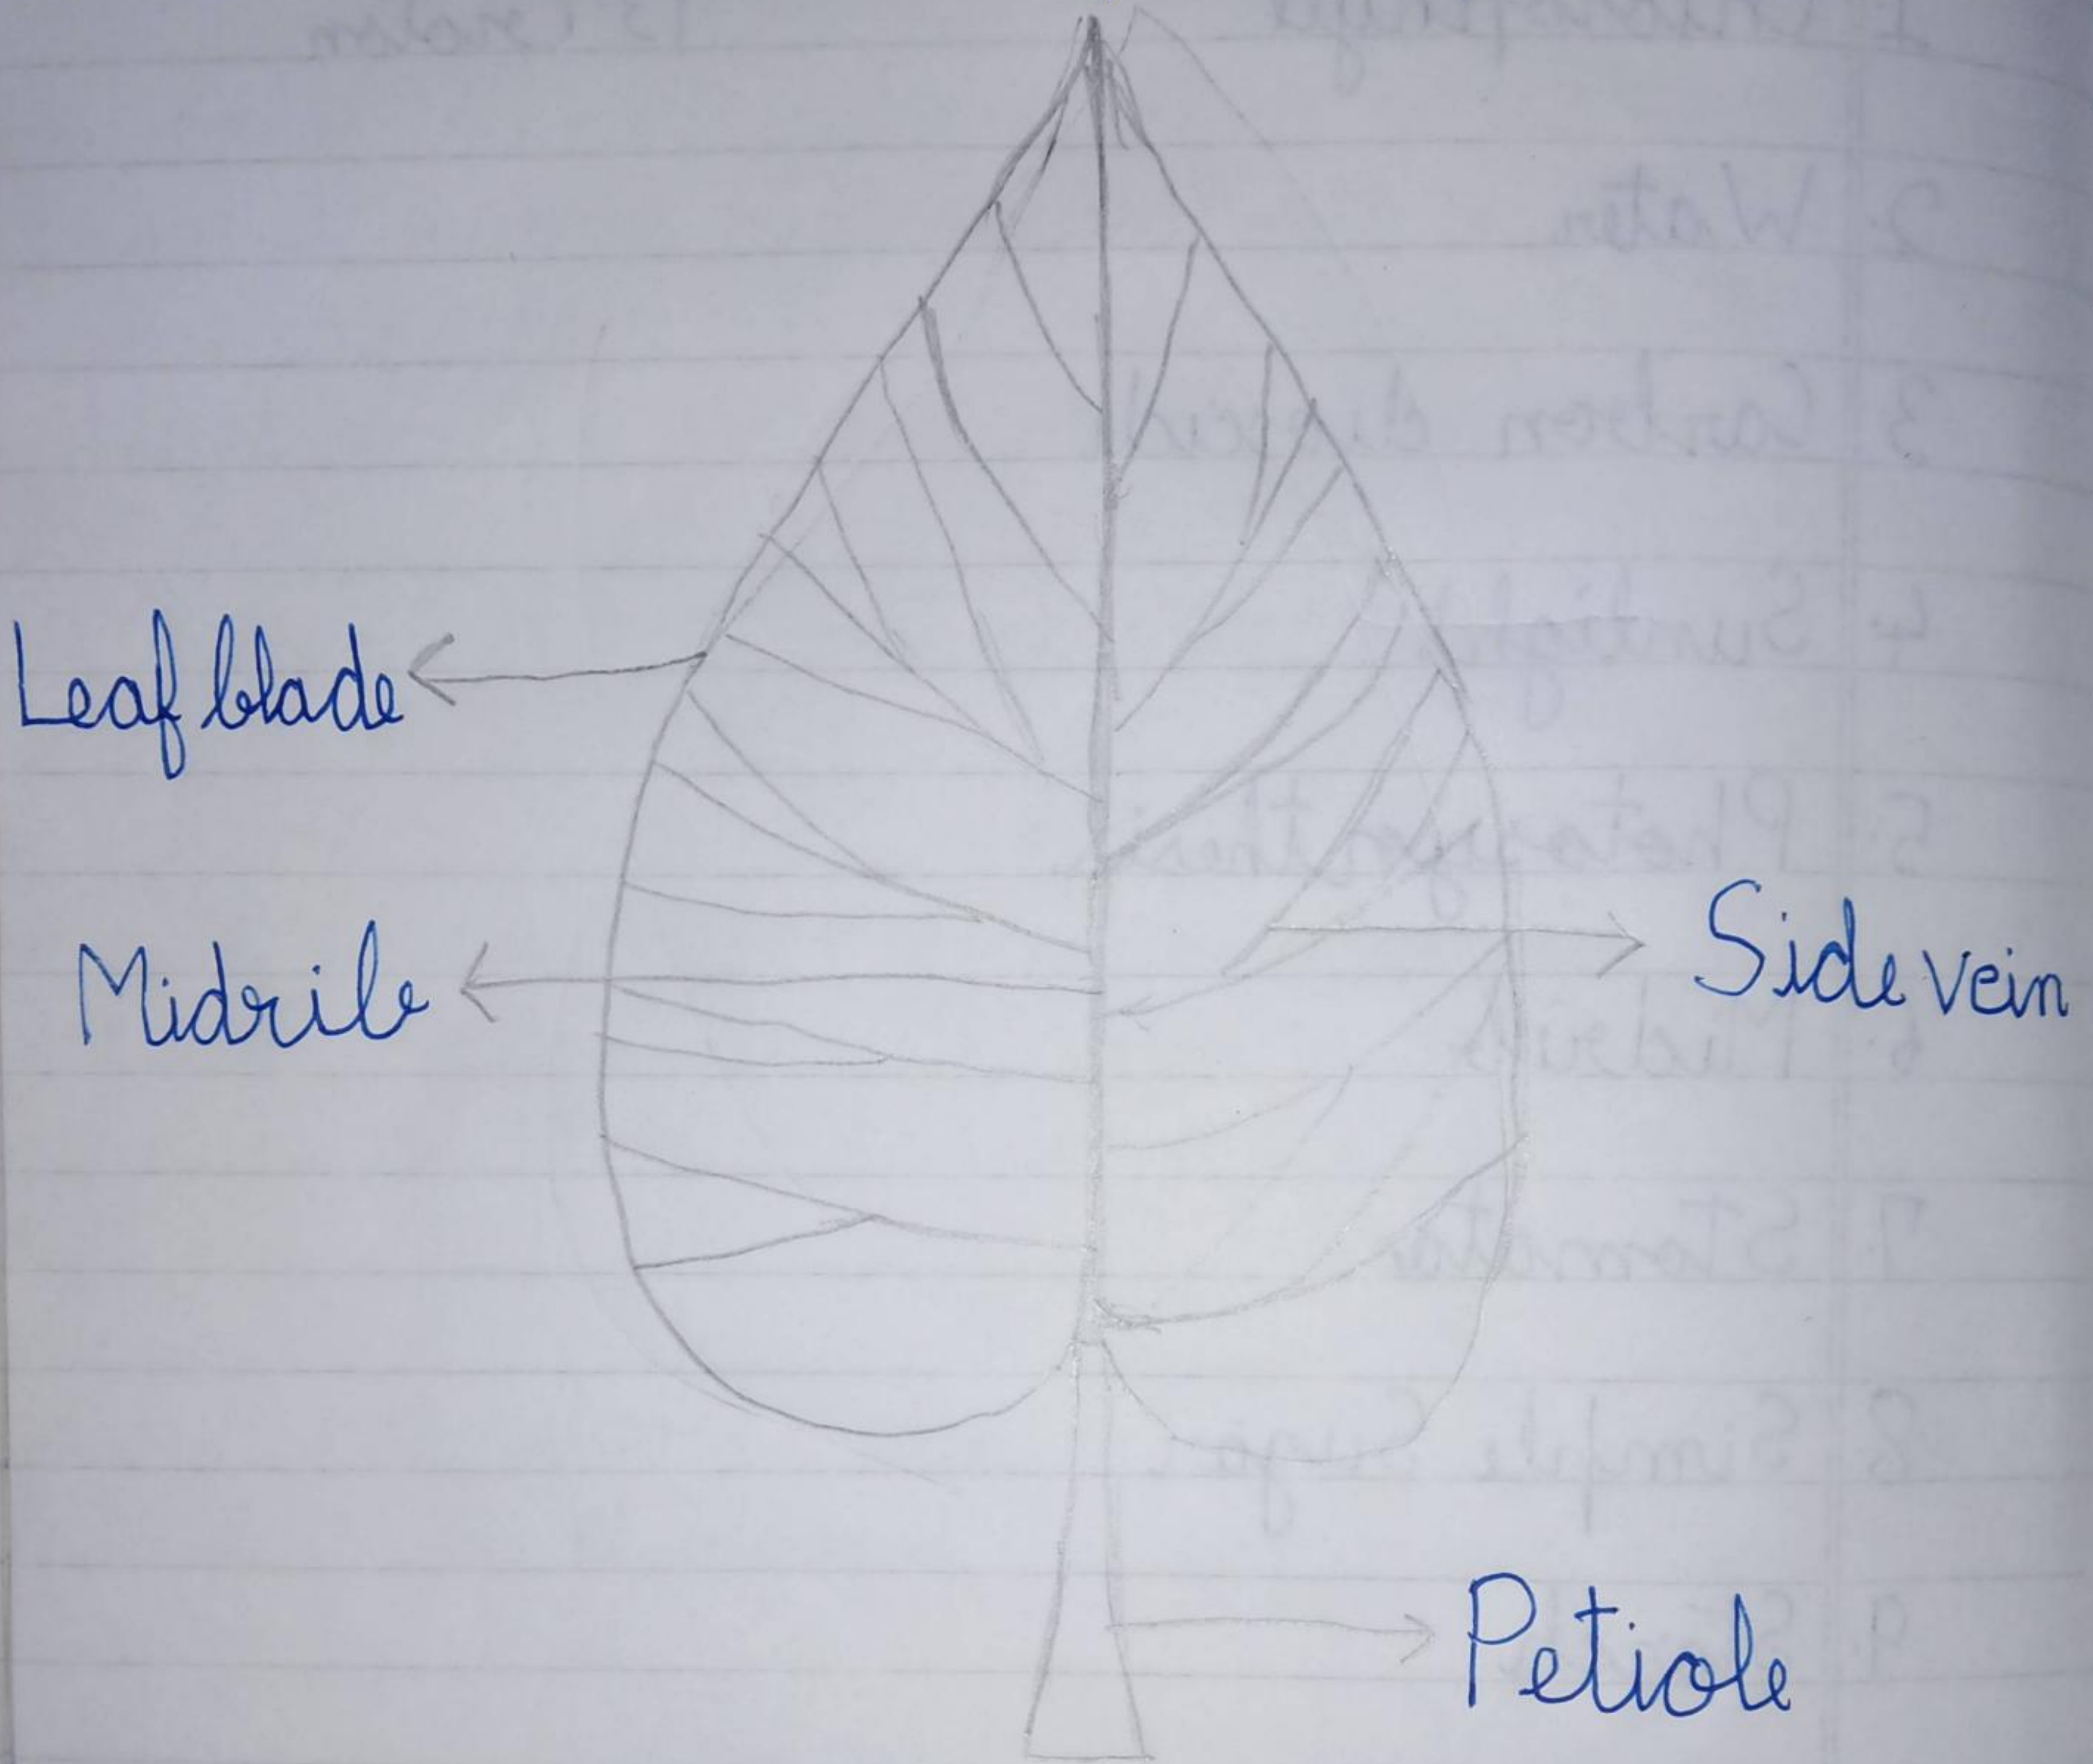 Leaf blade
Midrib
Side vein
Petiole